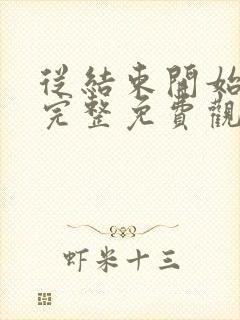 從結束開始
完整免費觀
虾米十三